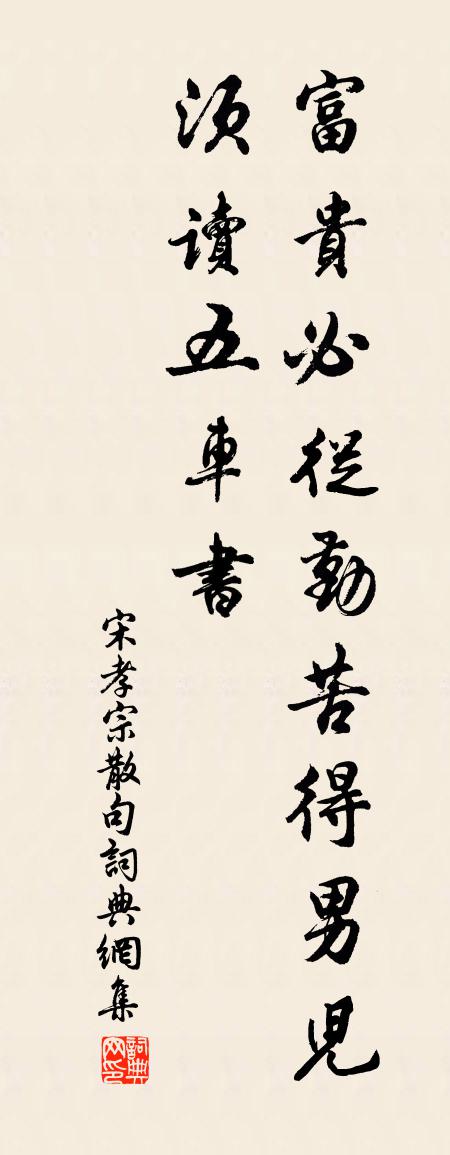 富貴必從勤苦得男兒
須讀五車書
宋孝宗散句詞典網集
詞典网印